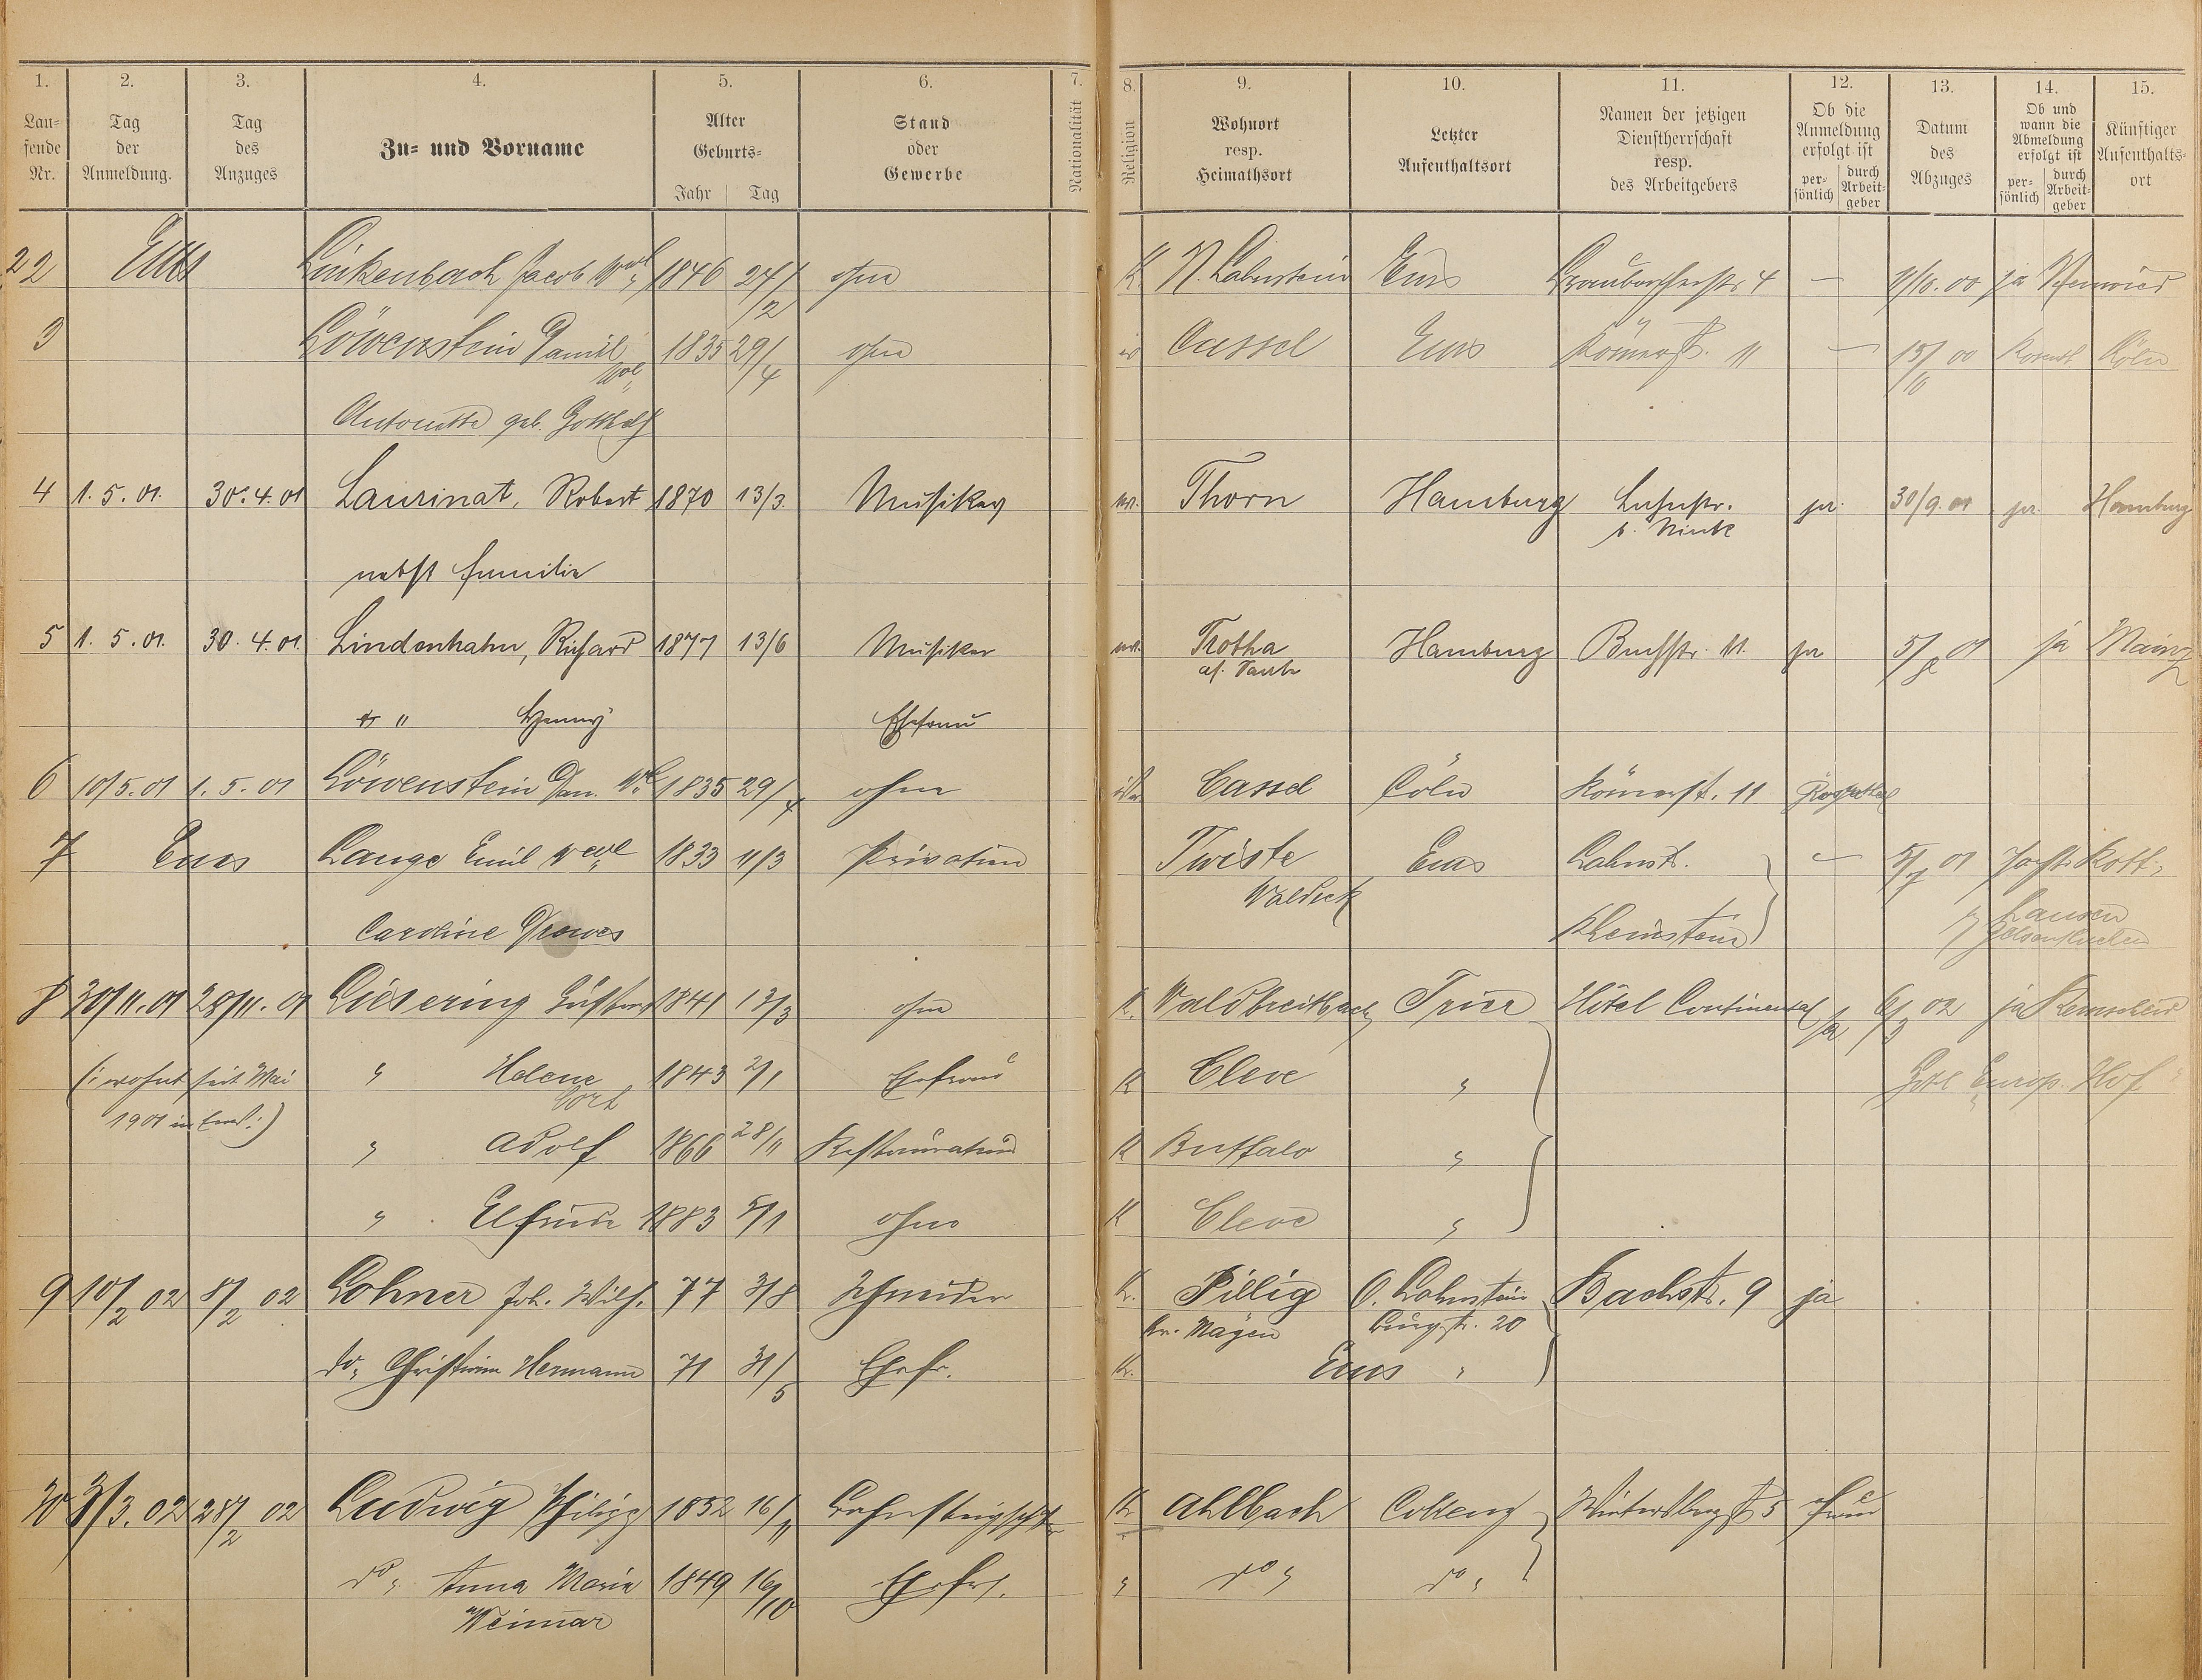 1. 2. 3. 4. 5. 6. 7. 8. 9. 10. 11. 12. 13. 14. 15.
Lau=
fende
Nr.
Tag
der
Anmeldung.
Tag
des
Anzuges
Zu= und Vorname
Alter
Geburts=
Jahr Tag
Stand
oder
Gewerbe
Nationalität
Religion
Wohnort
resp.
Heimathsort
Letzter
Aufenthaltsort
Namen der jetzigen
Dienstherrschaft
resp.
des Arbeitgebers
Ob die
Anmeldung
erfolgt ist
per=
sönlich
durch
Arbeit=
geber
Datum
des
Abzuges
Ob und
wann die
Abmeldung
erfolgt ist
per=
sönlich
durch
Arbeit=
geber
Künftiger
Aufenthalts=
ort
22 Ems Linkenbach Jacob Wwe 1846 24/12 ohne K. N. Lahnstein Ems 4 — 1/10. 00 ja Neuwied
3 Löwenstein Daniel 1835 29/4 ohne is Cassel Ems Römerst. 11 — 15/10 00 Köln
Wwe
Antonette geb. Gotthelf
4 1. 5. 01. 30. 4. 01 Laurinat, Robert 1870 13/3. Musiker ev. Thorn Hamburg Lahnstr. ja. 30/9. 01 ja. Hamburg
nebst Familie
5 1. 5. 01. 30. 4. 01. Lindenhahn, Richard 1877 13/6 Musiker ev. Trotha Hamburg Bachstr. 11. ja 5/ 01 ja Mainz
" Henny Ehefrau
6 10/5. 01 1. 5. 01 Löwenstein Dan. Wwe 1835 29/4 ohne isr. Cassel Cöln Römerst. 11
7 Ems Lange Emil Wwe 1833 11/3 Privatier Twiste Ems Lahnst. — 5/7 01
Waldeck
Caroline Drewes Rheinstein
8 30/11. 01 28/11. 01 Liesering Gustav 1841 13/3 ohne K. Waldbreitbach Trier Hôtel Continental ja 6/3 02 ja Remscheid
(: wohnt seit Mai " Helene 1843 2/1 Ehefrau K Cleve " Hôtel Europ. Hof
1901 in Ems :)
" Adolf 1866 28/11 Restaurateur K Buffalo "
" Elfriede 1883 5/1 ohne K Cleve "
9 10/2 02 8/2 02 Lohner Joh. Wilh. 77 3/8 Schneider K. Pillig O. Lahnstein Bachstr. 9 ja
Kr. Mayen Burgstr. 20
do " Christine Hermann 71 31/5 Ehefr. K. Ems "
30 3/3. 02 28/2 02 Ludwig Philipp 1852 16/11 K Ahlbach Coblenz Wintersbergst 5
do " Anna Maria 1849 16/10 Ehefr. " do " do "
Weimar